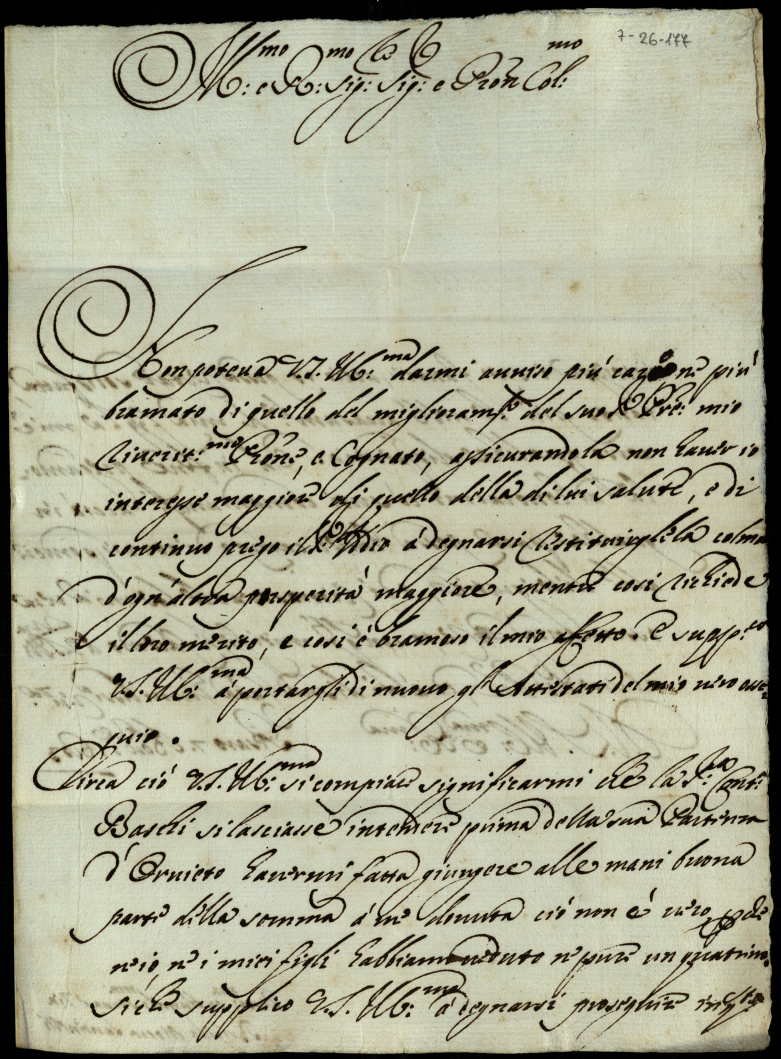 7-26-177
Ill:mo e R:mo Sig: Sig: e Pron Col:mo
Non poteva V.S. Ill:ma darmi avviso piú caro ne piú
bramato di quello del miglioram:to del suo Sig: Pre: mio
riverit:mo Prone, e Cognato, assicurandola non haver io
interesse maggiore di quello della di lui salute, e di
continuo prego il Sig: Iddio á degnarsi restituirgliela colma
d'ogn'altra prosperitá maggiore, mentre cosi richiede
il loro merito, e cosi é bramoso il mio affetto. E supp:co
V.S. Ill:ma á portargli di nuovo gl'Attestati del mio vero osse-
quio.
Circa ció V.S. Ill:ma si compiace significarmi che la S:ra Cont:
Baschi si lasciasse intendere prima della sua Partenza
d'Orvieto havermi fatta giungere alle mani buona
parte della somma á me dovuta ció non é vero, perche
ne io, ne i miei figli habbiamo veduto ne pure un quatrino.
Si che supplico V.S. Ill:ma á degnarsi proseguire in